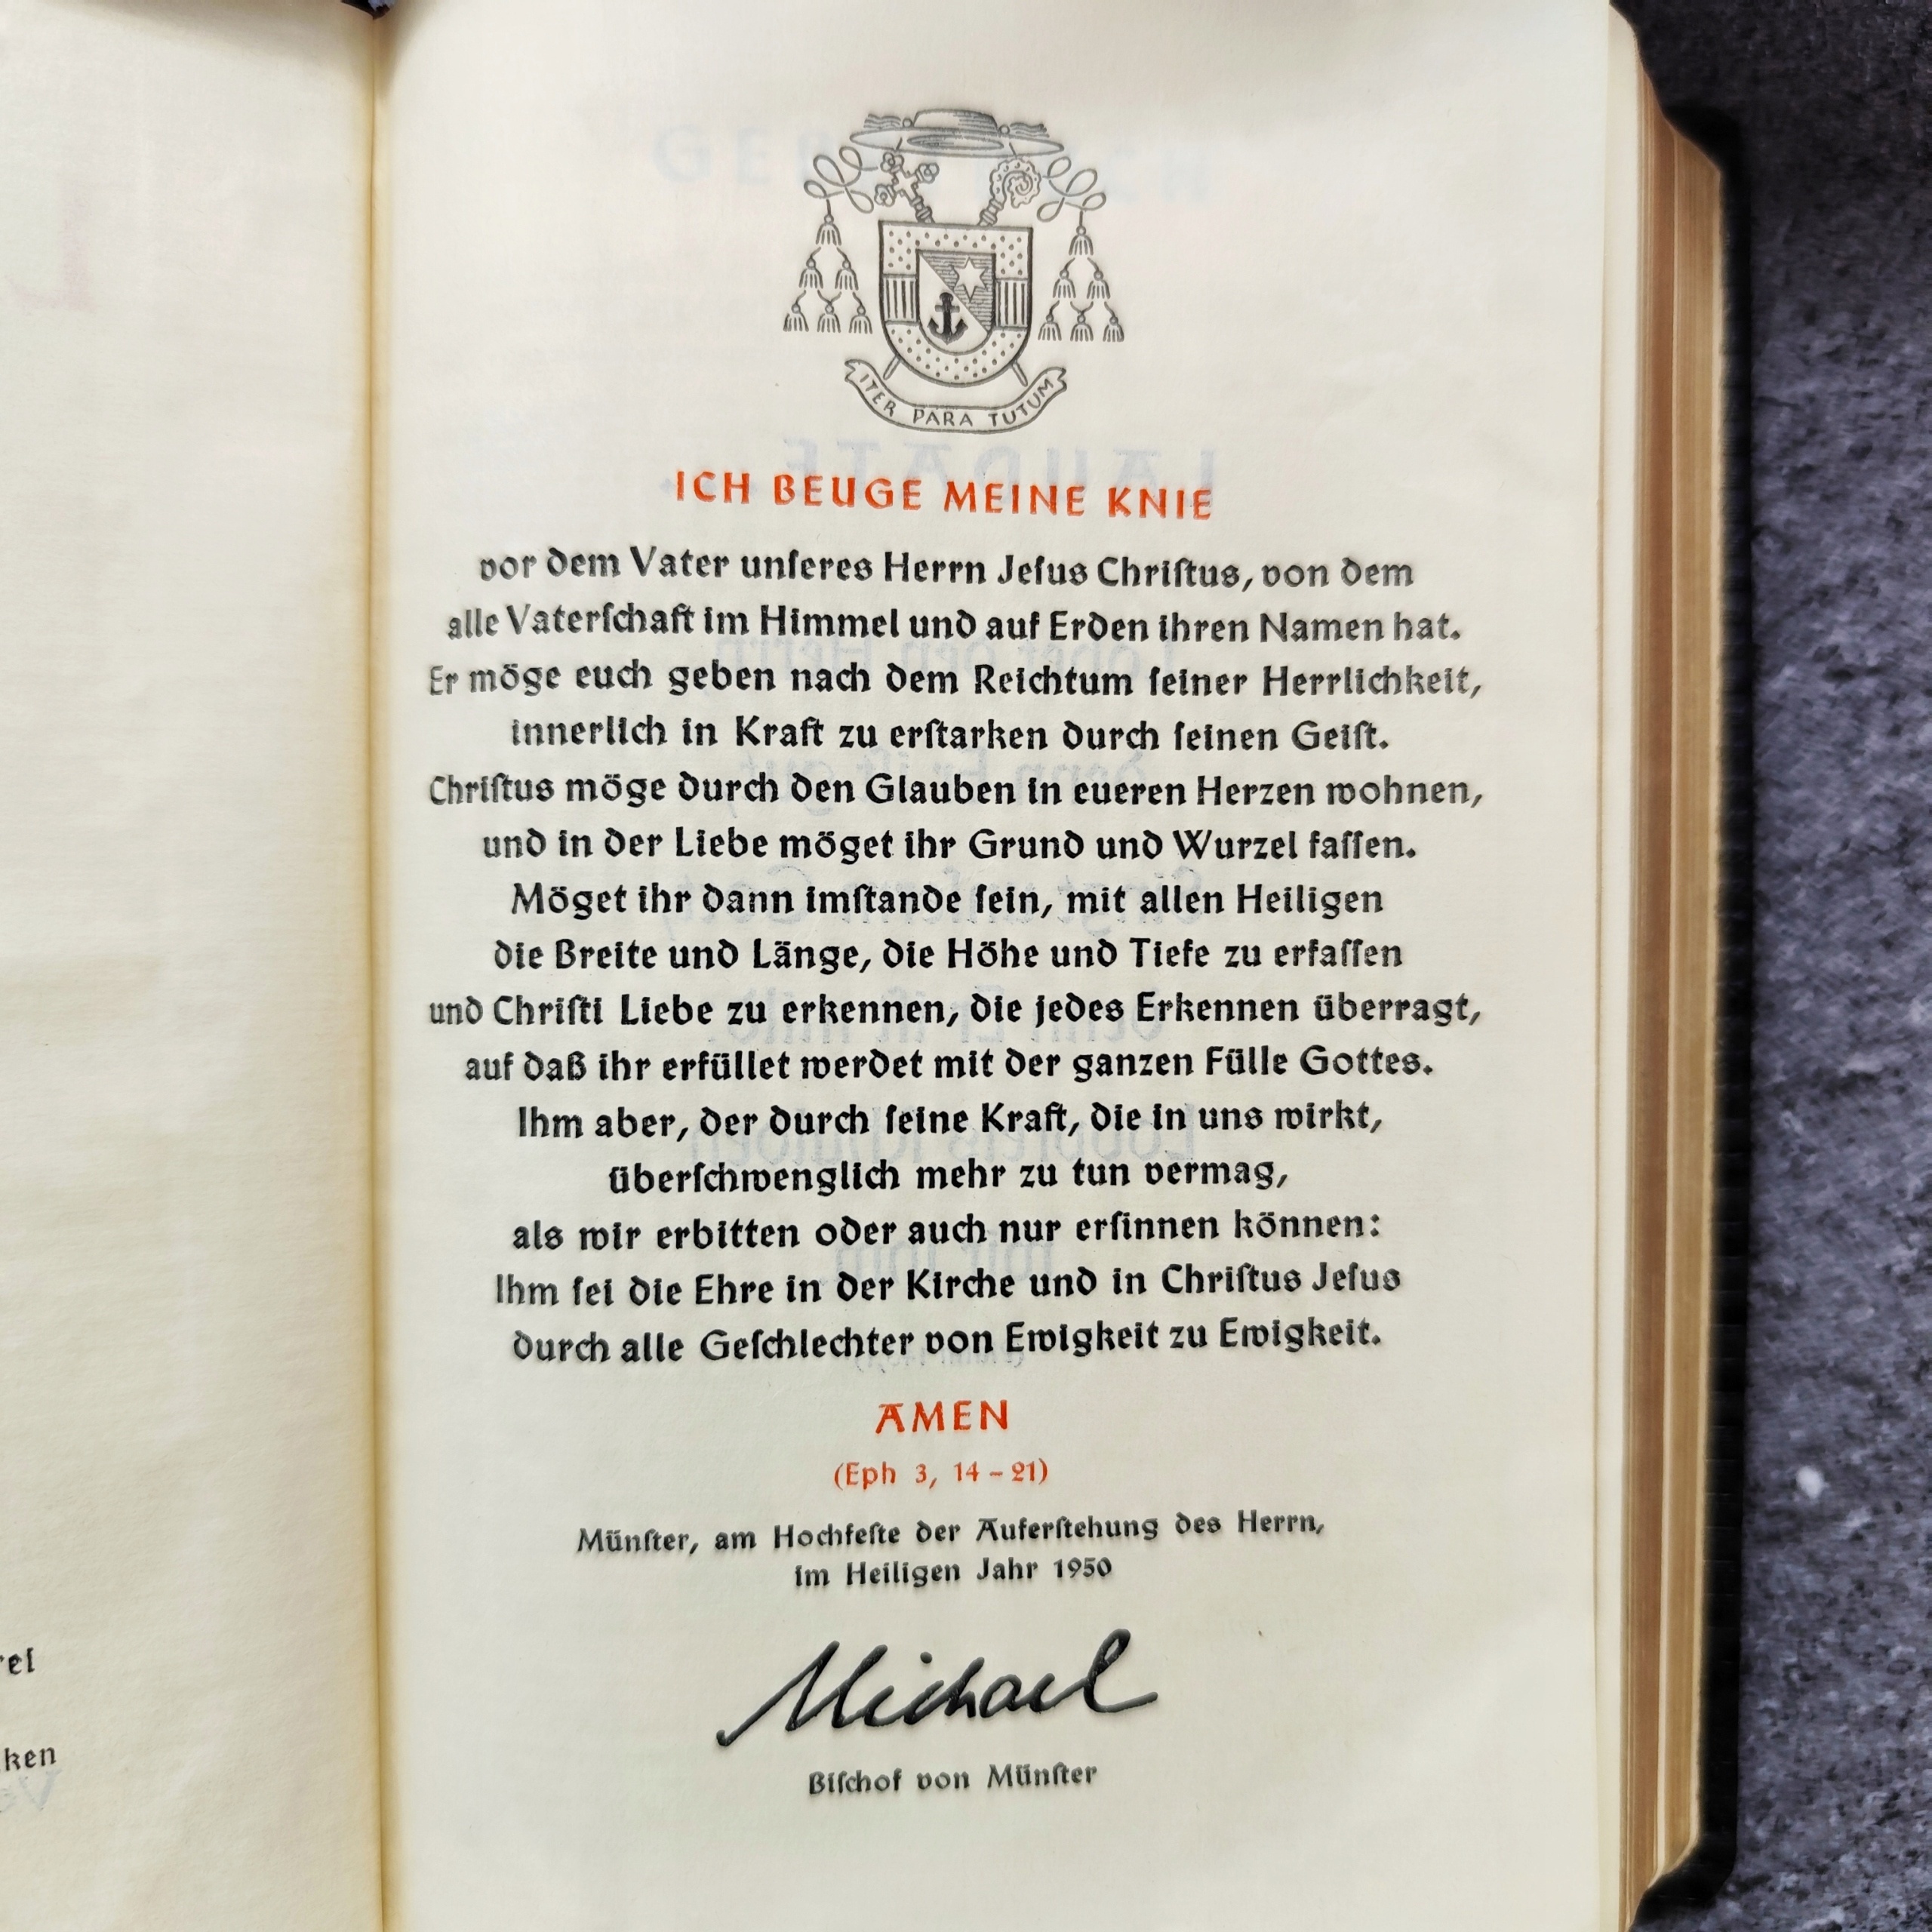 ITER PARA TUTUM
ICH BEUGE MEINE KNIE
vor dem Vater unſeres Herrn Jeſus Chriſtus, von dem
alle Vaterſchaft im Himmel und auf Erden ihren Namen hat.
Er möge euch geben nach dem Reichtum ſeiner Herrlichkeit,
innerlich in Kraft zu erſtarken durch ſeinen Geiſt.
Chriſtus möge durch den Glauben in eueren Herzen wohnen,
und in der Liebe möget ihr Grund und Wurzel faſſen.
Möget ihr dann imſtande ſein, mit allen Heiligen
die Breite und Länge, die Höhe und Tiefe zu erfaſſen
und Chriſti Liebe zu erkennen, die jedes Erkennen überragt,
auf daß ihr erfüllet werdet mit der ganzen Fülle Gottes.
Ihm aber, der durch ſeine Kraft, die in uns wirkt,
überſchwenglich mehr zu tun vermag,
als wir erbitten oder auch nur erſinnen können:
Ihm ſei die Ehre in der Kirche und in Chriſtus Jeſus
durch alle Geſchlechter von Ewigkeit zu Ewigkeit.
AMEN
(Eph 3, 14 – 21)
Münſter, am Hochfeſte der Auferſtehung des Herrn,
im Heiligen Jahr 1950
Michael
Biſchof von Münſter